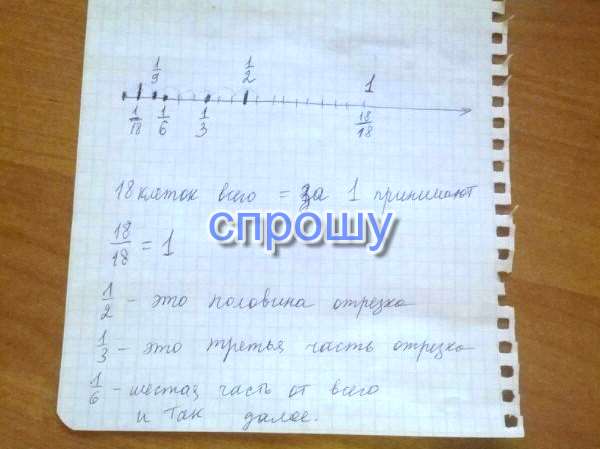 1/9 1/2 1
1/18 1/6 1/3 18/18
18 клеток всего = за 1 принимают
спрошу
18/18 = 1
1/2 - это половина отрезка
1/3 - это третья часть отрезка
1/6 - шестая часть от всего
и так далее.